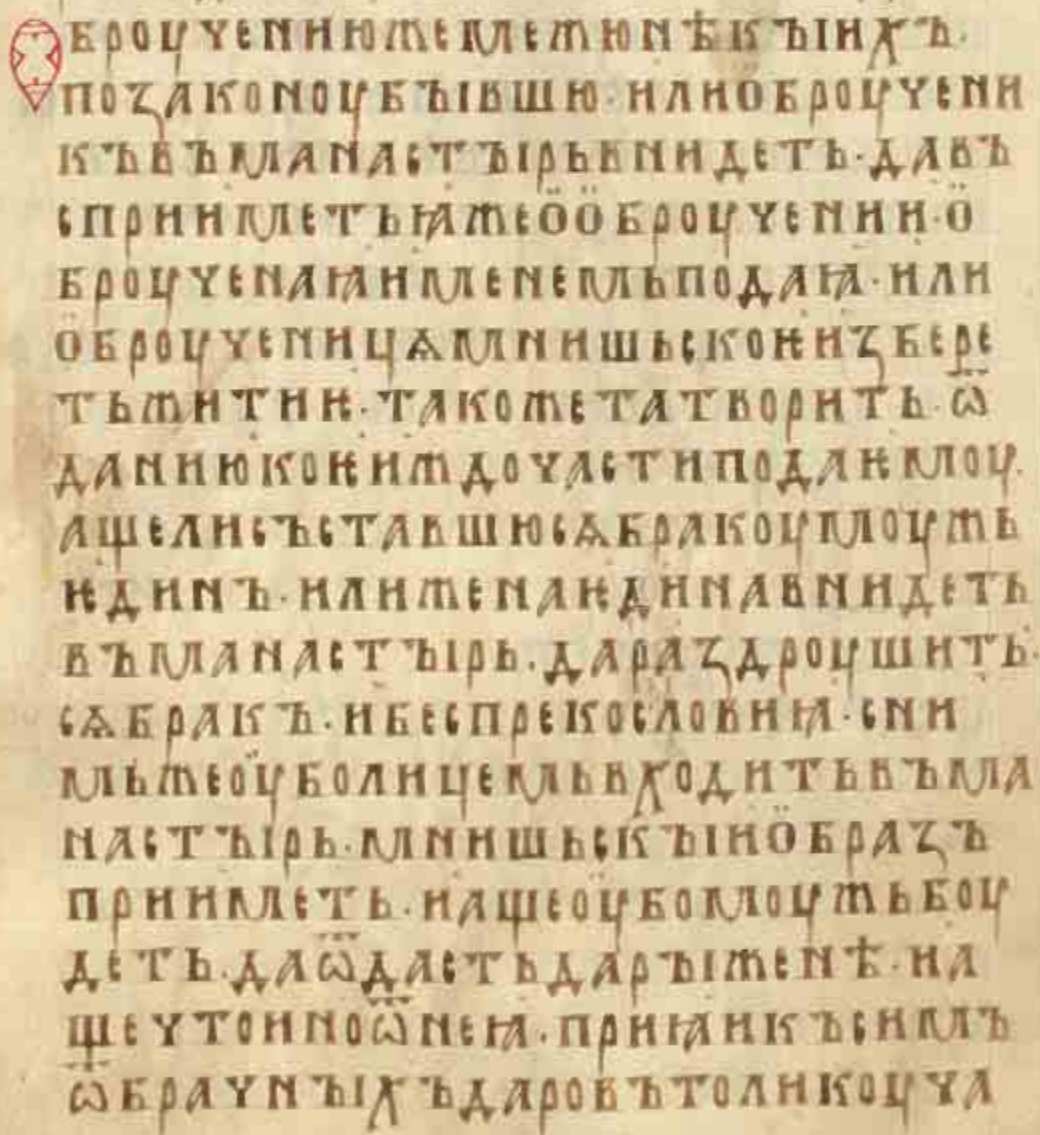 Ѻброучению же межю нѣкъіихъ·
по законоу бъівшю· или ѻброучени
къ въ манастъірь внидеть· да въ
сприиметь ꙗже ѻ ѻброучении· ѻ
броученаꙗ именемь подаꙗ· или
ѻброученица мнишьскоѥ избере
ть житиѥ· такоже та творить· ѿ
данию коѥиждо части подаѥмоу·
аще ли съставшюсѧ бракоу моужь
ѥдинъ· или жена ѥдина внидеть
въ манастъірь· да раздроушить
сѧ бракъ· и бес прекословиꙗ· сни
мьже оуболицемь входить въ ма
настъірь· мнишьскъіи ѻбразъ
прииметь· и аще оубо моужь боу
деть· да ѿдасть даръі женѣ· и а
ще что ино ѿ неꙗ· приꙗ и къ симъ
ѿ брачнъіхъ даровъ толикоу ча